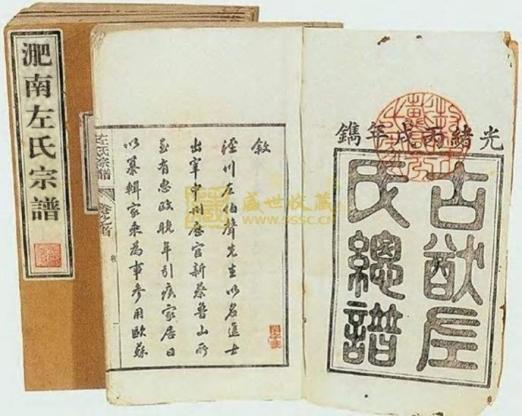 淝南左氏宗譜
光緒丙戌年鐫
古猷左
氏總譜
敘
涇川左伯聲先生以名進士
出宰中州歷官新蔡魯山所
至有惠政晚年引疾家居日
以纂輯家乘為事參用歐蘇
左氏宗譜 卷之首
盛世收藏
www.sssc.cn